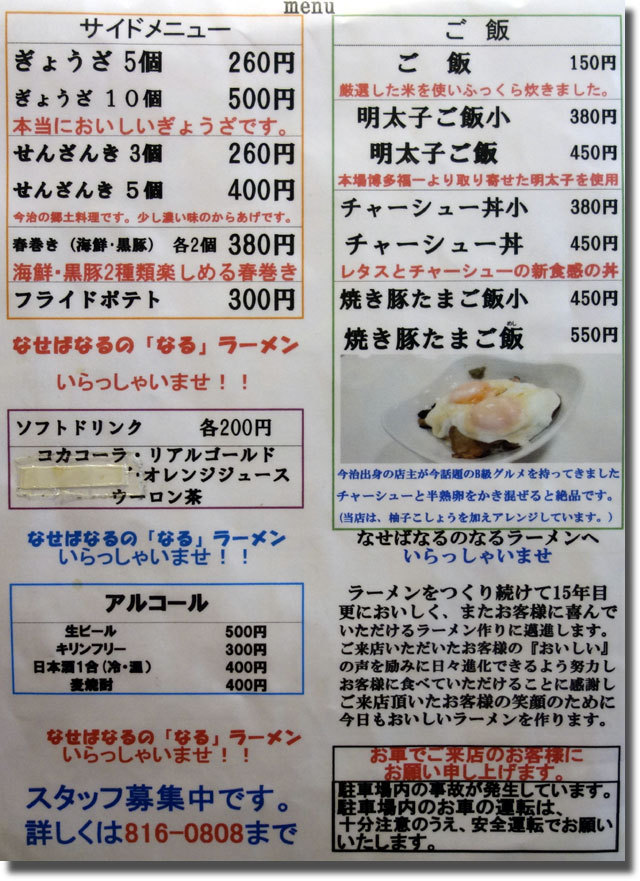 menu
サイドメニュー
ぎょうざ 5個 260円
ぎょうざ 10個 500円
本当においしいぎょうざです。
せんざんき 3個 260円
せんざんき 5個 400円
今治の郷土料理です。少し濃い味のからあげです。
春巻き（海鮮・黒豚） 各2個 380円
海鮮・黒豚2種類楽しめる春巻き
フライドポテト 300円
なせばなるの「なる」ラーメン
いらっしゃいませ！！
ソフトドリンク 各200円
コカコーラ・リアルゴールド
・オレンジジュース
ウーロン茶
なせばなるの「なる」ラーメン
いらっしゃいませ！！
アルコール
生ビール 500円
キリンフリー 300円
日本酒1合（冷・温） 400円
麦焼酎 400円
なせばなるの「なる」ラーメン
いらっしゃいませ！！
スタッフ募集中です。
詳しくは816-0808まで
ご 飯
ご 飯 150円
厳選した米を使いふっくら炊きました。
明太子ご飯小 380円
明太子ご飯 450円
本場博多福一より取り寄せた明太子を使用
チャーシュー丼小 380円
チャーシュー丼 450円
レタスとチャーシューの新食感の丼
焼き豚たまご飯小 450円
焼き豚たまご飯 550円
めし
今治出身の店主が今話題のB級グルメを持ってきました
チャーシューと半熟卵をかき混ぜると絶品です。
（当店は、柚子こしょうを加えアレンジしています。）
なせばなるのなるラーメンへ
いらっしゃいませ
ラーメンをつくり続けて15年目
更においしく、またお客様に喜んで
いただけるラーメン作りに邁進します。
ご来店いただいたお客様の『おいしい』
の声を励みに日々進化できるよう努力し
お客様に食べていただけることに感謝し
ご来店頂いたお客様の笑顔のために
今日もおいしいラーメンを作ります。
お車でご来店のお客様に
お願い申し上げます。
駐車場内の事故が発生しています。
駐車場内のお車の運転は、
十分注意のうえ、安全運転でお願い
いたします。